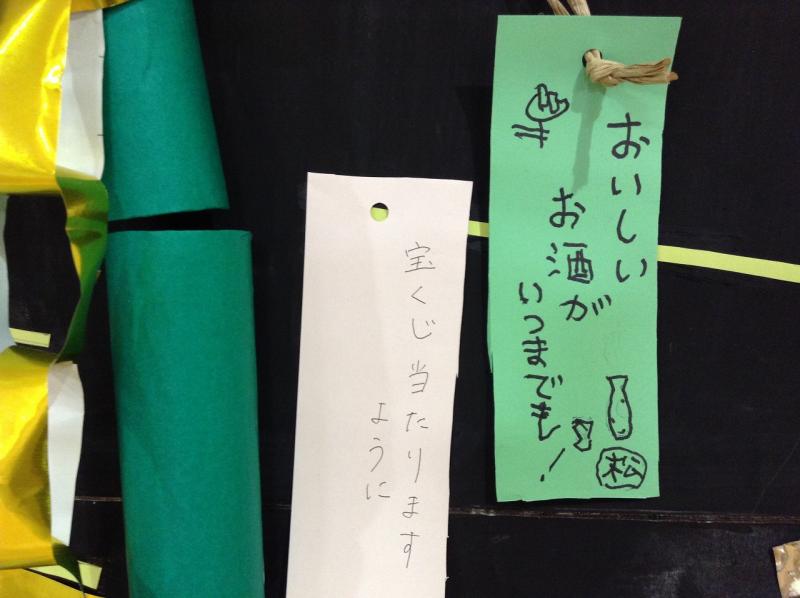 おいしい
お酒が
いつまでも!
松
宝くじ当たります
ように